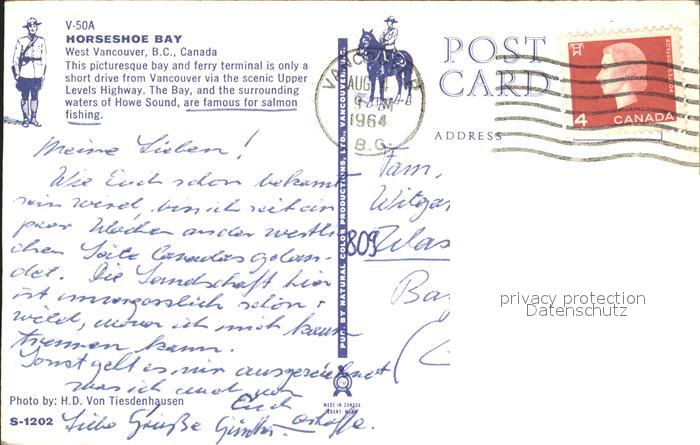 V-50A
HORSESHOE BAY
West Vancouver, B.C., Canada
This picturesque bay and ferry terminal is only a
short drive from Vancouver via the scenic Upper
Levels Highway. The Bay, and the surrounding
waters of Howe Sound, are famous for salmon
fishing.
Meine Lieben!
Wie Euch schon bekannt
sein wird, bin ich seit ein
paar Wochen an der westli-
chen Seite Canadas gelan-
det. Die Landschaft hier
ist unvergesslich schön &
wild, wovon ich mich kaum
trennen kann.
Sonst geht es mir ausgezeichnet
was ich auch von
Euch hoffe.
Liebe Grüße Günther
Photo by: H.D. Von Tiesdenhausen
S-1202
PUB. BY NATURAL COLOR PRODUCTIONS, LTD., VANCOUVER, B.C.
MADE IN CANADA
VANCOUVER
AUG 4
9 PM
1964
B.C.
POST
CARD
ADDRESS
POSTES POSTAGE
4 CANADA
Fam.
809
Ba
privacy protection
Datenschutz